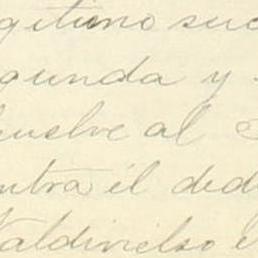 gitimo suc
gunda y
suelve al
ntra él ded
Valdivielso é